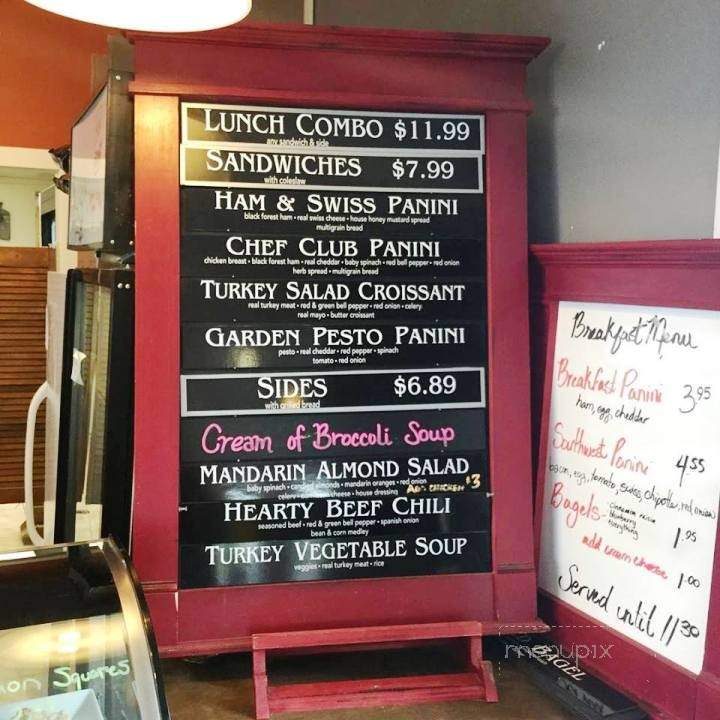 LUNCH COMBO $11.99
any sandwich & side
SANDWICHES $7.99
with coleslaw
HAM & SWISS PANINI
black forest ham • real swiss cheese • house honey mustard spread
multigrain bread
CHEF CLUB PANINI
chicken breast • black forest ham • real cheddar • baby spinach • red bell pepper • red onion
herb spread • multigrain bread
TURKEY SALAD CROISSANT
real turkey meat • red & green bell pepper • red onion • celery
real mayo • butter croissant
GARDEN PESTO PANINI
pesto • real cheddar • red pepper • spinach
tomato • red onion
SIDES $6.89
with grilled bread
Cream of Broccoli Soup
MANDARIN ALMOND SALAD
baby spinach • candied almonds • mandarin oranges • red onion
celery • cheese • house dressing ADD CHICKEN $3
HEARTY BEEF CHILI
seasoned beef • red & green bell pepper • spanish onion
bean & corn medley
TURKEY VEGETABLE SOUP
veggies • real turkey meat • rice
Breakfast Menu
Breakfast Panini 3.95
ham, egg, cheddar
Southwest Panini 4.55
bacon, egg, tomato, swiss, chipotle, red onion
Bagels - cinnamon raisin
blueberry
everything 1.95
add cream cheese 1.00
Served until 11:30
on Squares
BAGEL
menupix